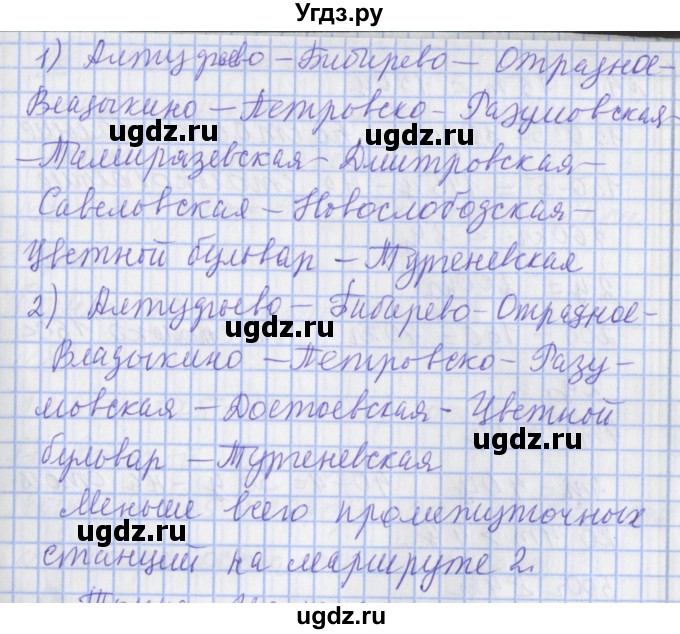 Угдз.ру
1) Алтудьево – Бибирево – Отрадное –
Владыкино – Петровско - Разумовская -
ugdz.ru ugdz.ru
– Тимирязевская - Дмитровская –
Савеловская – Новослободская –
Цветной бульвар – Тургеневская
2) Алтудьево – Бибирево - Отрадное -
ugdz.ru
Владыкино – Петровско - Разу -
мовская – Достоевская - Цветной
ugdz.ru ugdz.ru
бульвар – Тургеневская
Меньше всего промежуточных
ugdz.ru
станций на маршруте 2.
ugdz.ru
ugdz.ru